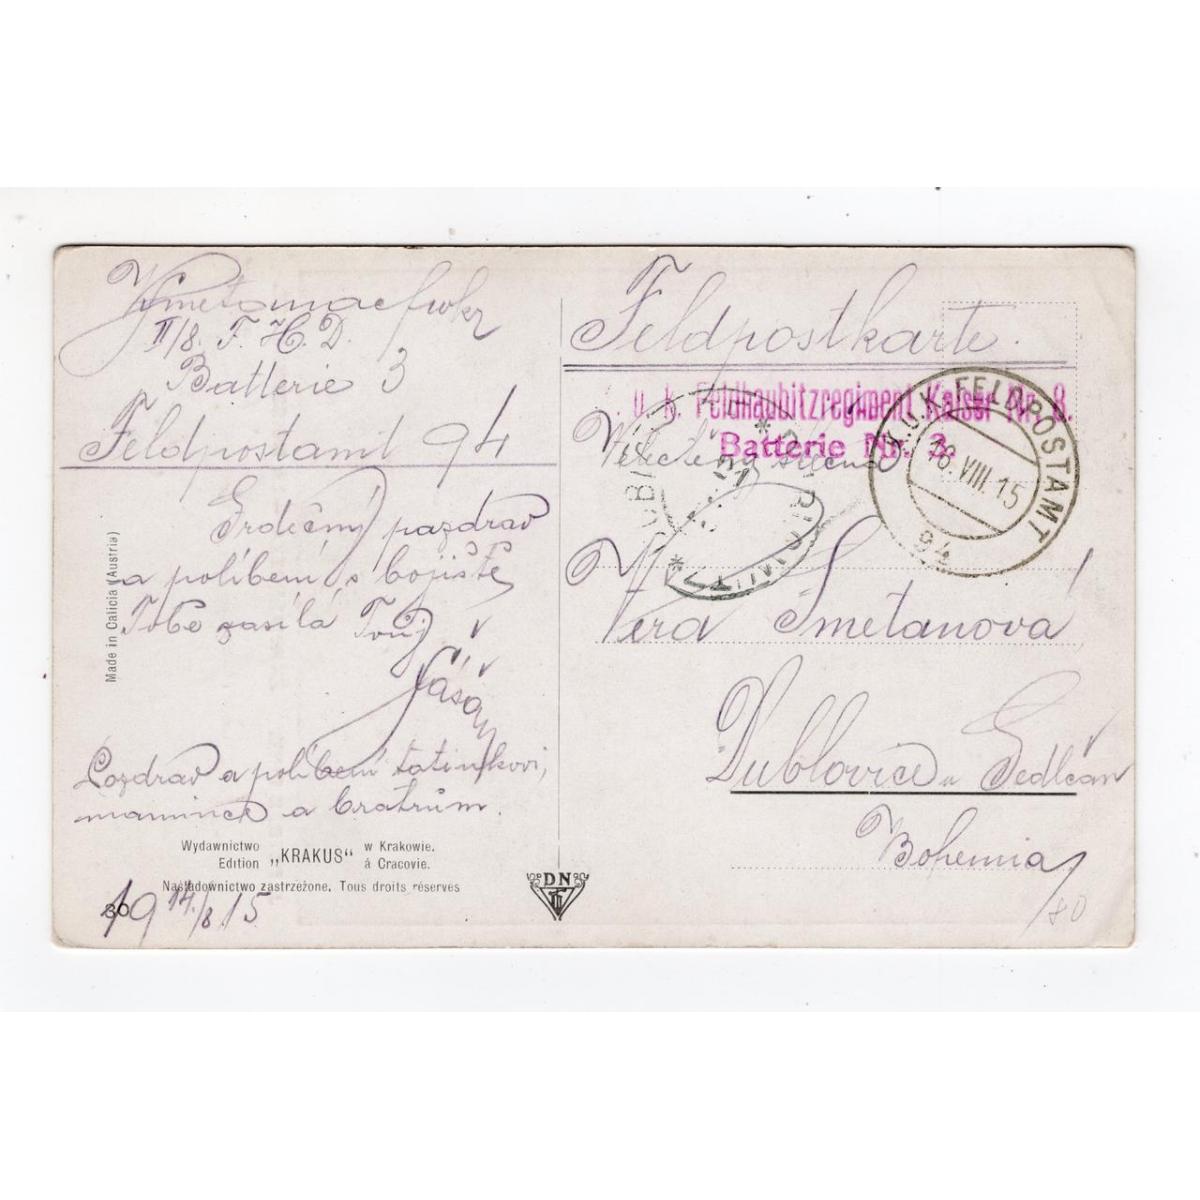 II/8. F. H. D.
Batterie 3
Feldpostamt 94
Srdečný pozdrav
a políbení s bojiště
Tobě zasílá Tvůj
Pozdrav a políbení tatínkovi,
mamince a bratrům.
Made in Galicia (Austria)
Wydawnictwo
Edition „KRAKUS“ w Krakowie.
á Cracovie.
Naśladownictwo zastrzeżone. Tous droits réserves
30
19 14./8. 15
DN
Feldpostkarte.
u. k. Feldhaubitzregiment Kaiser Nr. 8.
Batterie Nr. 3.
K.U.K. FELDPOSTAMT
16. VIII. 15
94
Velectěná slečna
Věra Smetanová
Dublovice u Sedlčan
Bohemia